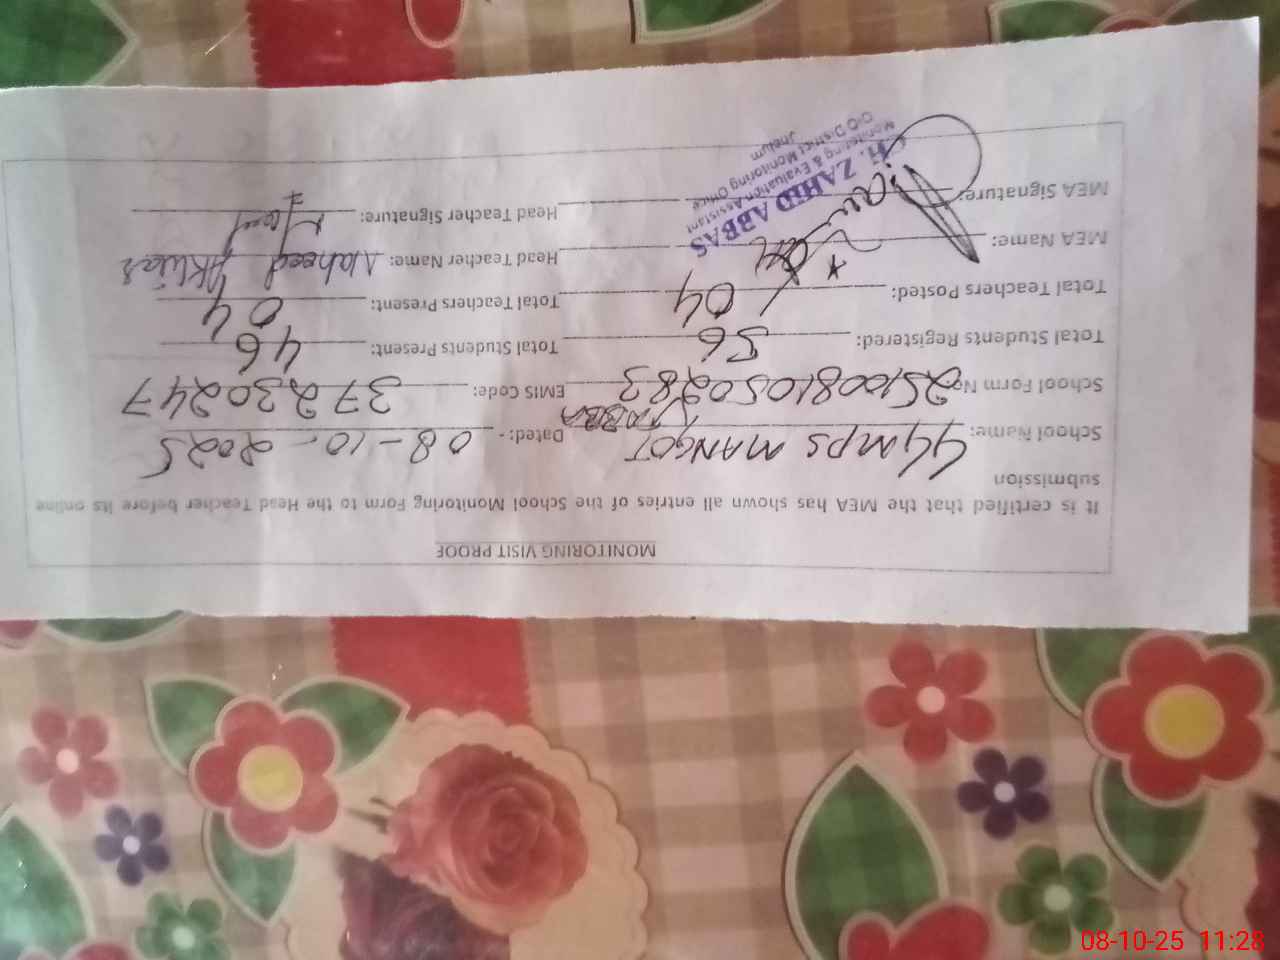 MONITORING VISIT PROOF
It is certified that the MEA has shown all entries of the School Monitoring Form to the Head Teacher before its online
submission
School Name: GGMPS MANGOT Dated: - 08-10-2025
School Form No 2510081050283 EMIS Code: 37230247
Total Students Registered: 56 Total Students Present: 46
Total Teachers Posted: 04 Total Teachers Present: 04
MEA Name: Head Teacher Name: Naheed Akhtar
MEA Signature: Head Teacher Signature:
CH. ZAHID ABBAS
Monitoring & Evaluation Assistant
O/O District Monitoring Office
Jhelum
08-10-25 11:28